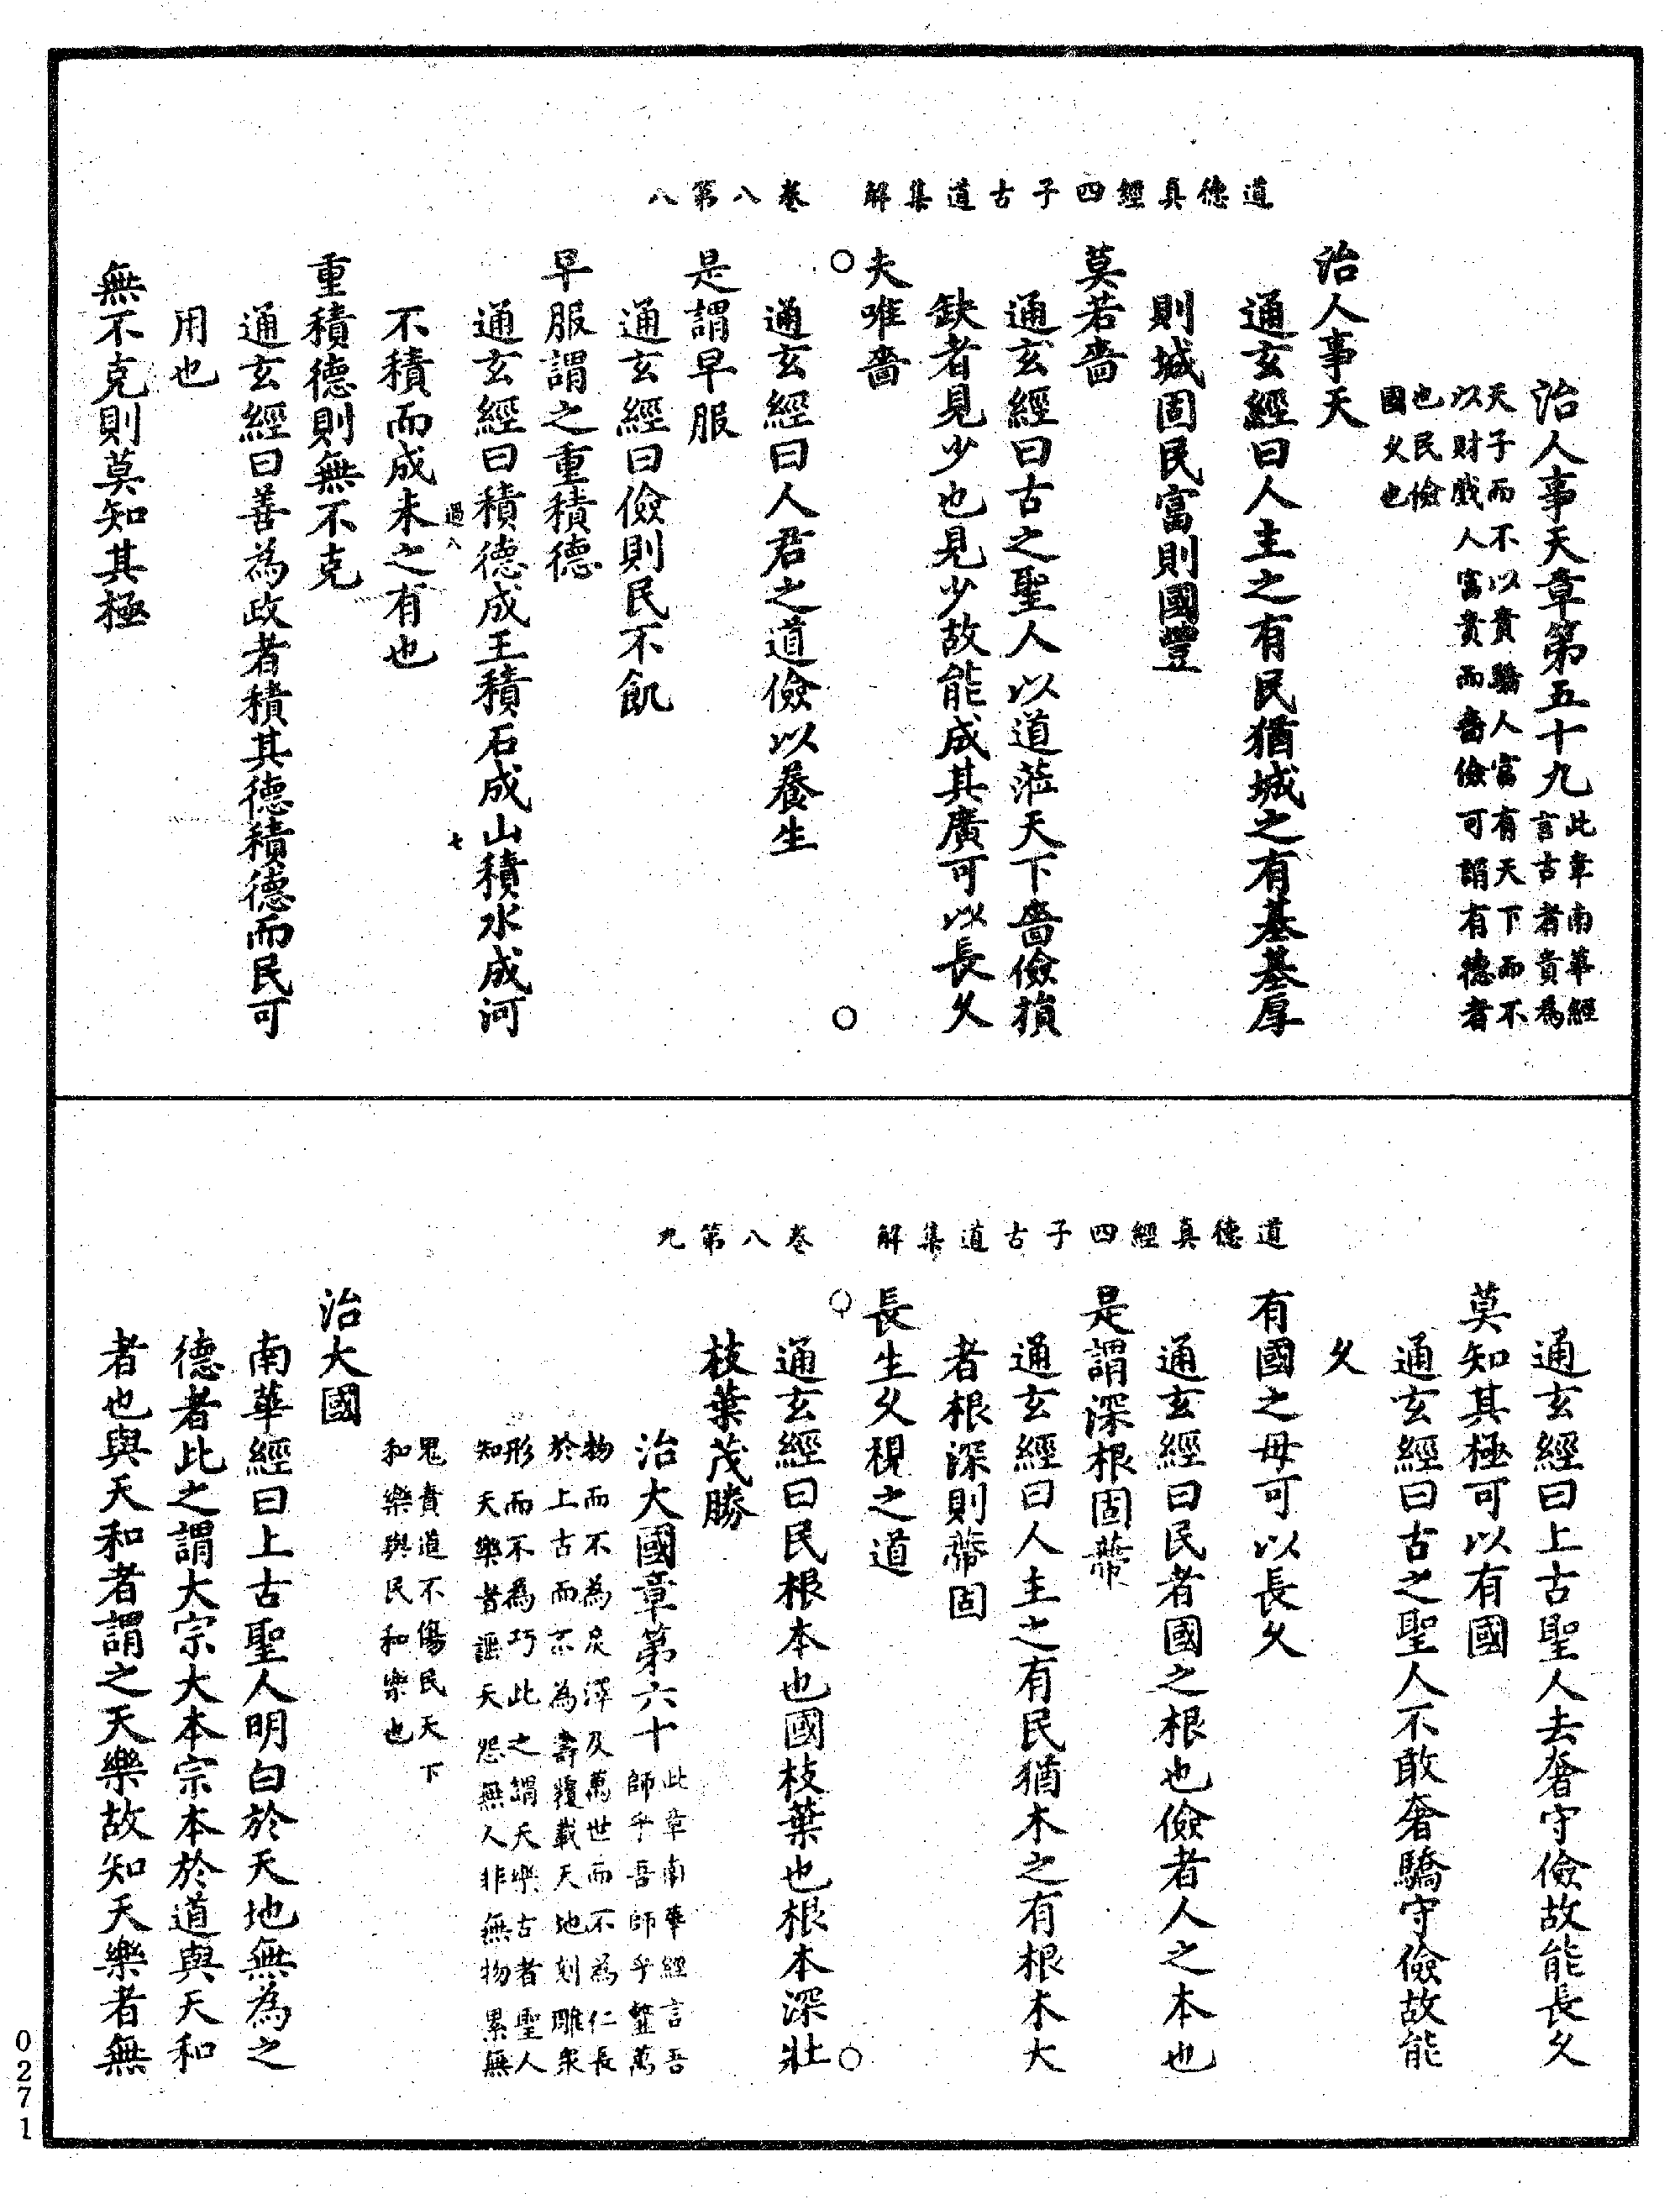 道德真經四子古道集解　卷八第八
治人事天章第五十九
此章南華經
言古者貴為
天子而不以貴驕人富有天下而不
以財戲人富貴而嗇儉可謂有德者
也民儉
國乆也
治人事天
通玄經曰人主之有民猶城之有基基厚
則城固民富則國豐
莫若嗇
通玄經曰古之聖人以道蒞天下嗇儉損
缺者見少也見少故能成其廣可以長乆
夫唯嗇
通玄經曰人君之道儉以養生
是謂早服
通玄經曰儉則民不飢
早服謂之重積德
通玄經曰積德成王積石成山積水成河
過八　七
不積而成未之有也
重積德則無不克
通玄經曰善為政者積其德積德而民可
用也
無不克則莫知其極
道德真經四子古道集解　卷八第九
通玄經曰上古聖人去奢守儉故能長乆
莫知其極可以有國
通玄經曰古之聖人不敢奢驕守儉故能
乆
有國之母可以長乆
通玄經曰民者國之根也儉者人之本也
是謂深根固蔕
通玄經曰人主之有民猶木之有根木大
者根深則蔕固
長生乆視之道
通玄經曰民根本也國枝葉也根本深壯
枝葉茂勝
治大國章第六十
此章南華經言吾
師乎吾師乎韲萬
物而不為戾澤及萬世而不為仁長
於上古而不為壽覆載天地刻雕衆
形而不為巧此之謂天樂古者聖人
知天樂者謳天怨無人非無物累無
鬼責道不傷民天下
和樂與民和樂也
治大國
南華經曰上古聖人明白於天地無為之
德者此之謂大宗大本宗本於道與天和
者也與天和者謂之天樂故知天樂者無
0271